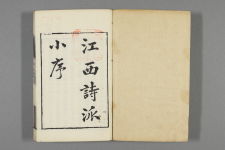 江西詩派
小序